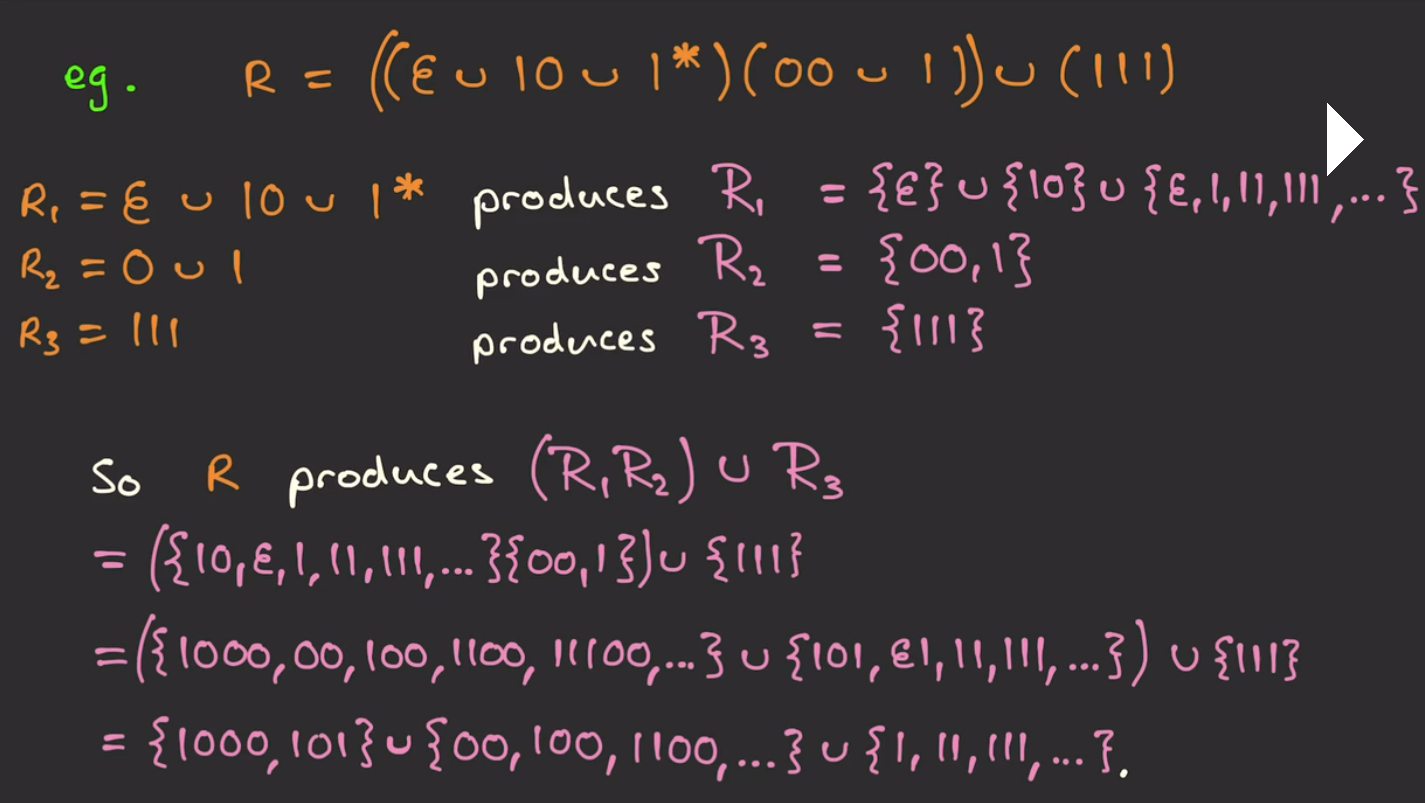 eg. R = ((ε ∪ 10 ∪ 1*)(00 ∪ 1)) ∪ (111)
R₁ = ε ∪ 10 ∪ 1* produces R₁ = {ε} ∪ {10} ∪ {ε, 1, 11, 111, ...}
R₂ = 0 ∪ 1 produces R₂ = {00, 1}
R₃ = 111 produces R₃ = {111}
So R produces (R₁R₂) ∪ R₃
= ({10, ε, 1, 11, 111, ...}{00, 1}) ∪ {111}
= ({1000, 00, 100, 1100, 11100, ...} ∪ {101, ε1, 11, 111, ...}) ∪ {111}
= {1000, 101} ∪ {00, 100, 1100, ...} ∪ {1, 11, 111, ...}.